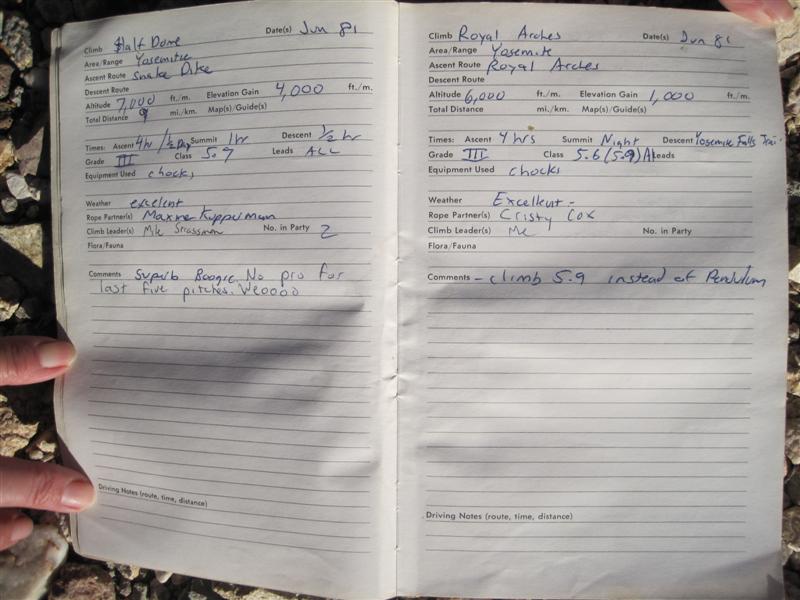 Climb Half Dome Date(s) Jun 81
Area/Range Yosemitie
Ascent Route Snake Dike
Descent Route
Altitude 7,000 ft./m. Elevation Gain 4,000 ft./m.
Total Distance 9 mi./km. Map(s)/Guide(s)
Times: Ascent 4hr / 1/2 Day Summit 1hr Descent 1/2 hr
Grade III Class 5.9 Leads ALL
Equipment Used chocks,
Weather excelent
Rope Partner(s) Maxine Kupperman
Climb Leader(s) Mike Strassman No. in Party 2
Flora/Fauna
Comments Superb Boogie. No pro for
last five pitches. Weoooo
Driving Notes (route, time, distance)
Climb Royal Arches Date(s) Jun 81
Area/Range Yosemite
Ascent Route Royal Arches
Descent Route
Altitude 6,000 ft./m. Elevation Gain 1,000 ft./m.
Total Distance mi./km. Map(s)/Guide(s)
Times: Ascent 4 hrs Summit Night Descent Yosemite Falls Trai
Grade III Class 5.6 (5.9) A1 Leads
Equipment Used chocks
Weather Excellent -
Rope Partner(s) Cristy Cox
Climb Leader(s) Me No. in Party
Flora/Fauna
Comments - climb 5.9 instead of Pendulum
Driving Notes (route, time, distance)